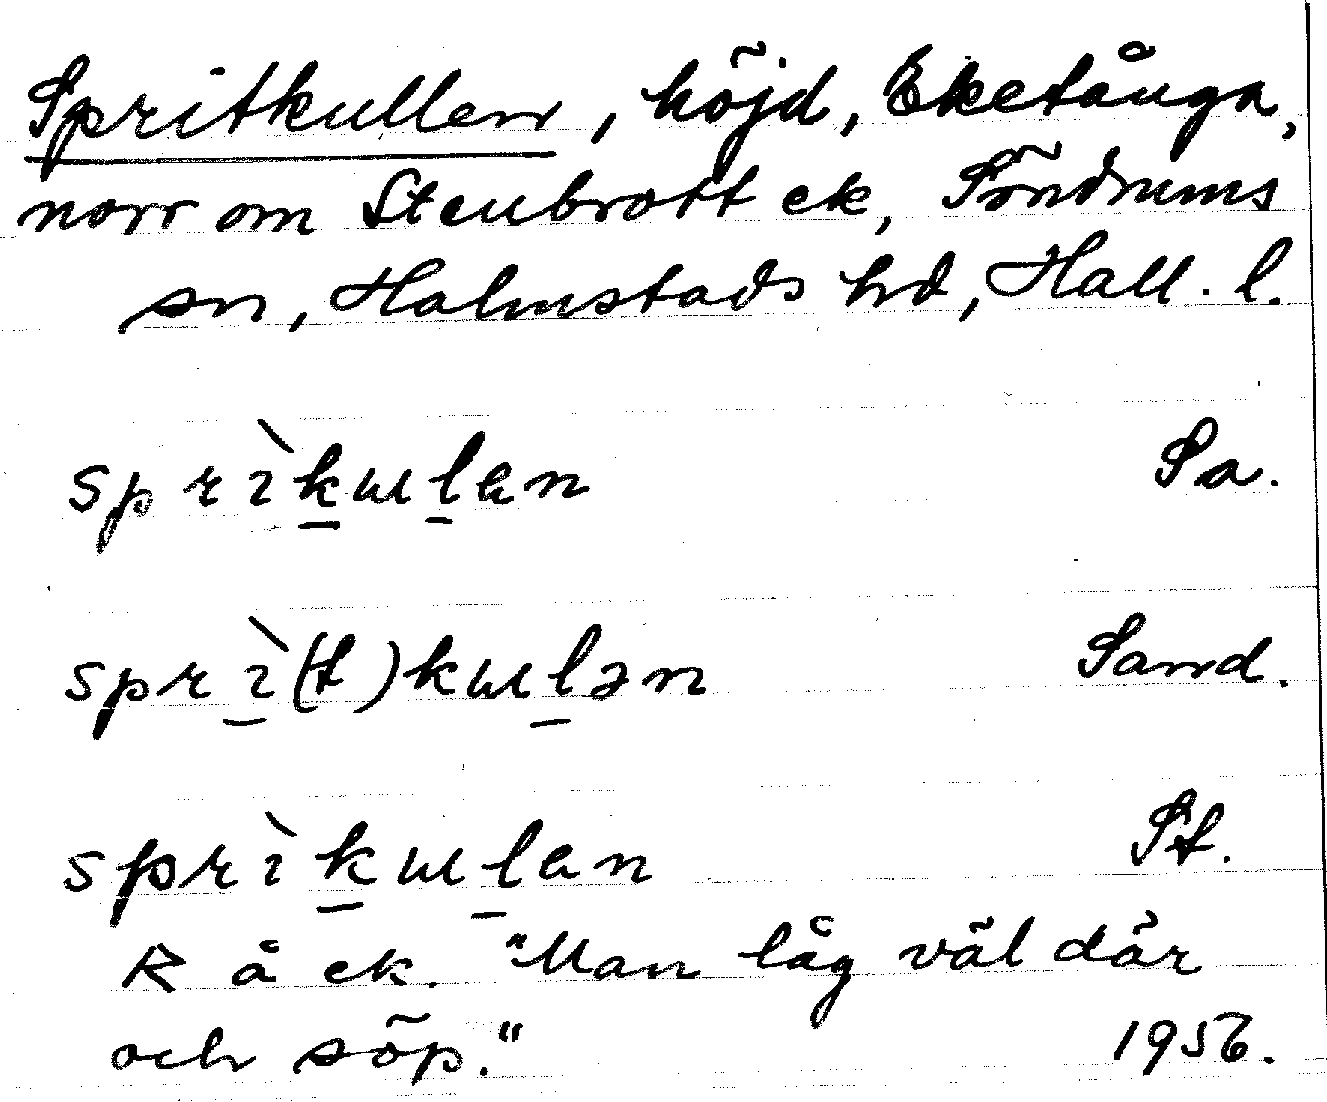 Spritkullen, höjd, Eketånga,
norr om Stenbrott ek, Söndrums
sn, Halmstads hd, Hall. l.
sprìkulan Sa.
sprì(t)kulən Sand.
sprìkulan St.
R å ek. "Man låg väl där
och söp." 1956.